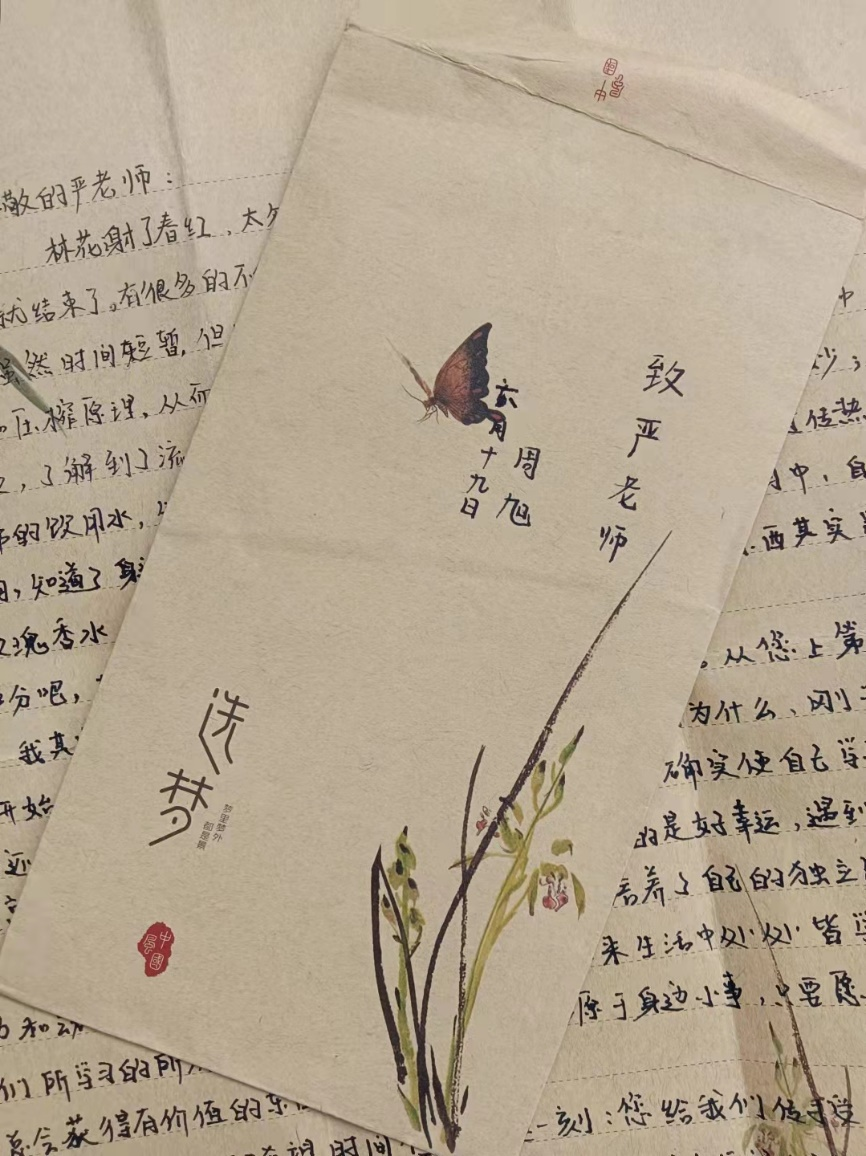 敬的严老师：
林花谢了春红，太匆
就结束了。有很多的不
虽然时间短暂，但
压榨原理，从而
，了解到了流
的饮用水，
，知道了身
瑰香水
分吧，
我其
开始
还
和动
们所学习的所
总会获得有价值的东
时间
中
妙；
传热
中，自
西其实
。从您上第
为什么、刚
确实使自己学
的是好幸运，遇到
培养了自己的独立
来生活中处处皆学
原于身边小事，只要愿
一刻：您给我们传授
致严老师
周旭
六月十九日
洗梦
梦里梦外
都是景
中国
中国风